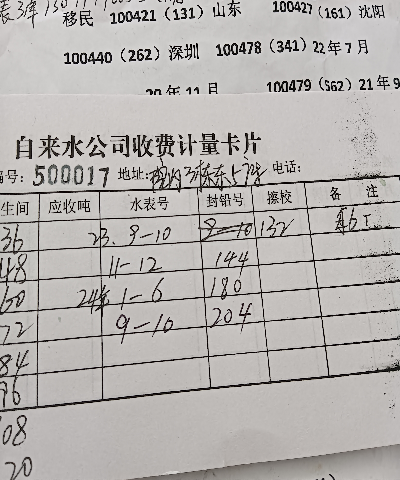 移民 100421 (131) 山东 100427 (161) 沈阳
100440 (262) 深圳 100478 (341) 22年7月
20年11月 100479 (562) 21年9
自来水公司收费计量卡片
编号: 500017 地址: 电话:
生间 应收吨 水表号 封铅号 擦校 备 注
36 23. 9-10 8-10 132
48 11-12 144
60 24年 1-6 180
72 9-10 204
84
96
08
20